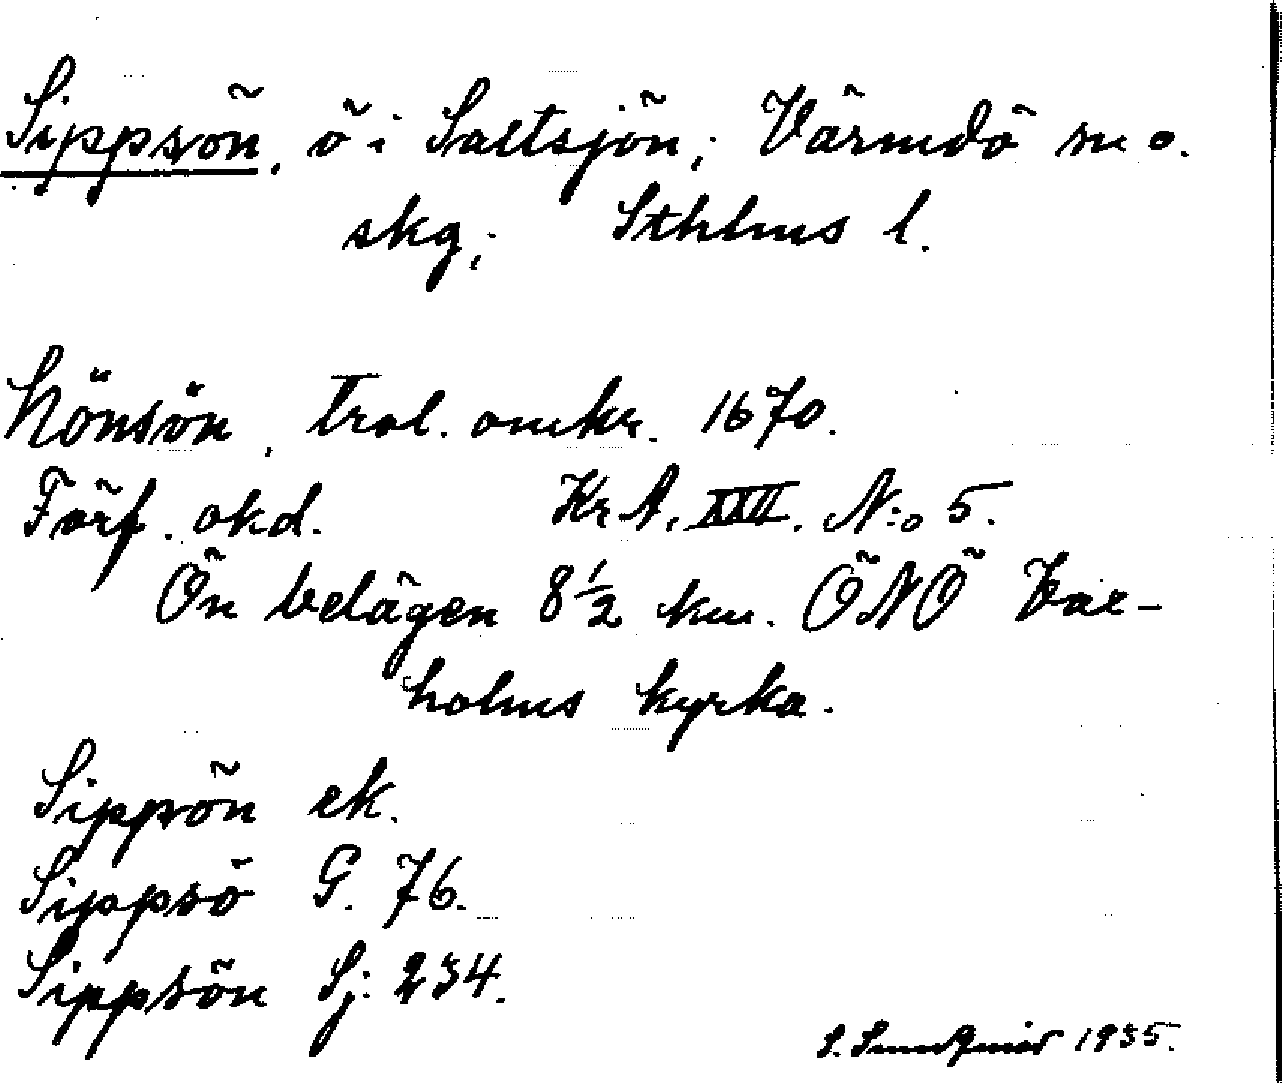 Sippsön, ö i Saltsjön; Värmdö sn o.
skg; Sthlms l.
Hönsön, trol. omkr. 1670.
Förf. okd. Kr A. XXII. N:o 5.
Ön belägen 8 1/2 km. ÖNÖ Vax-
holms kyrka.
Sippsön ek.
Sippsö G. 76.
Sippsön Sj. 234.
S. 1935.